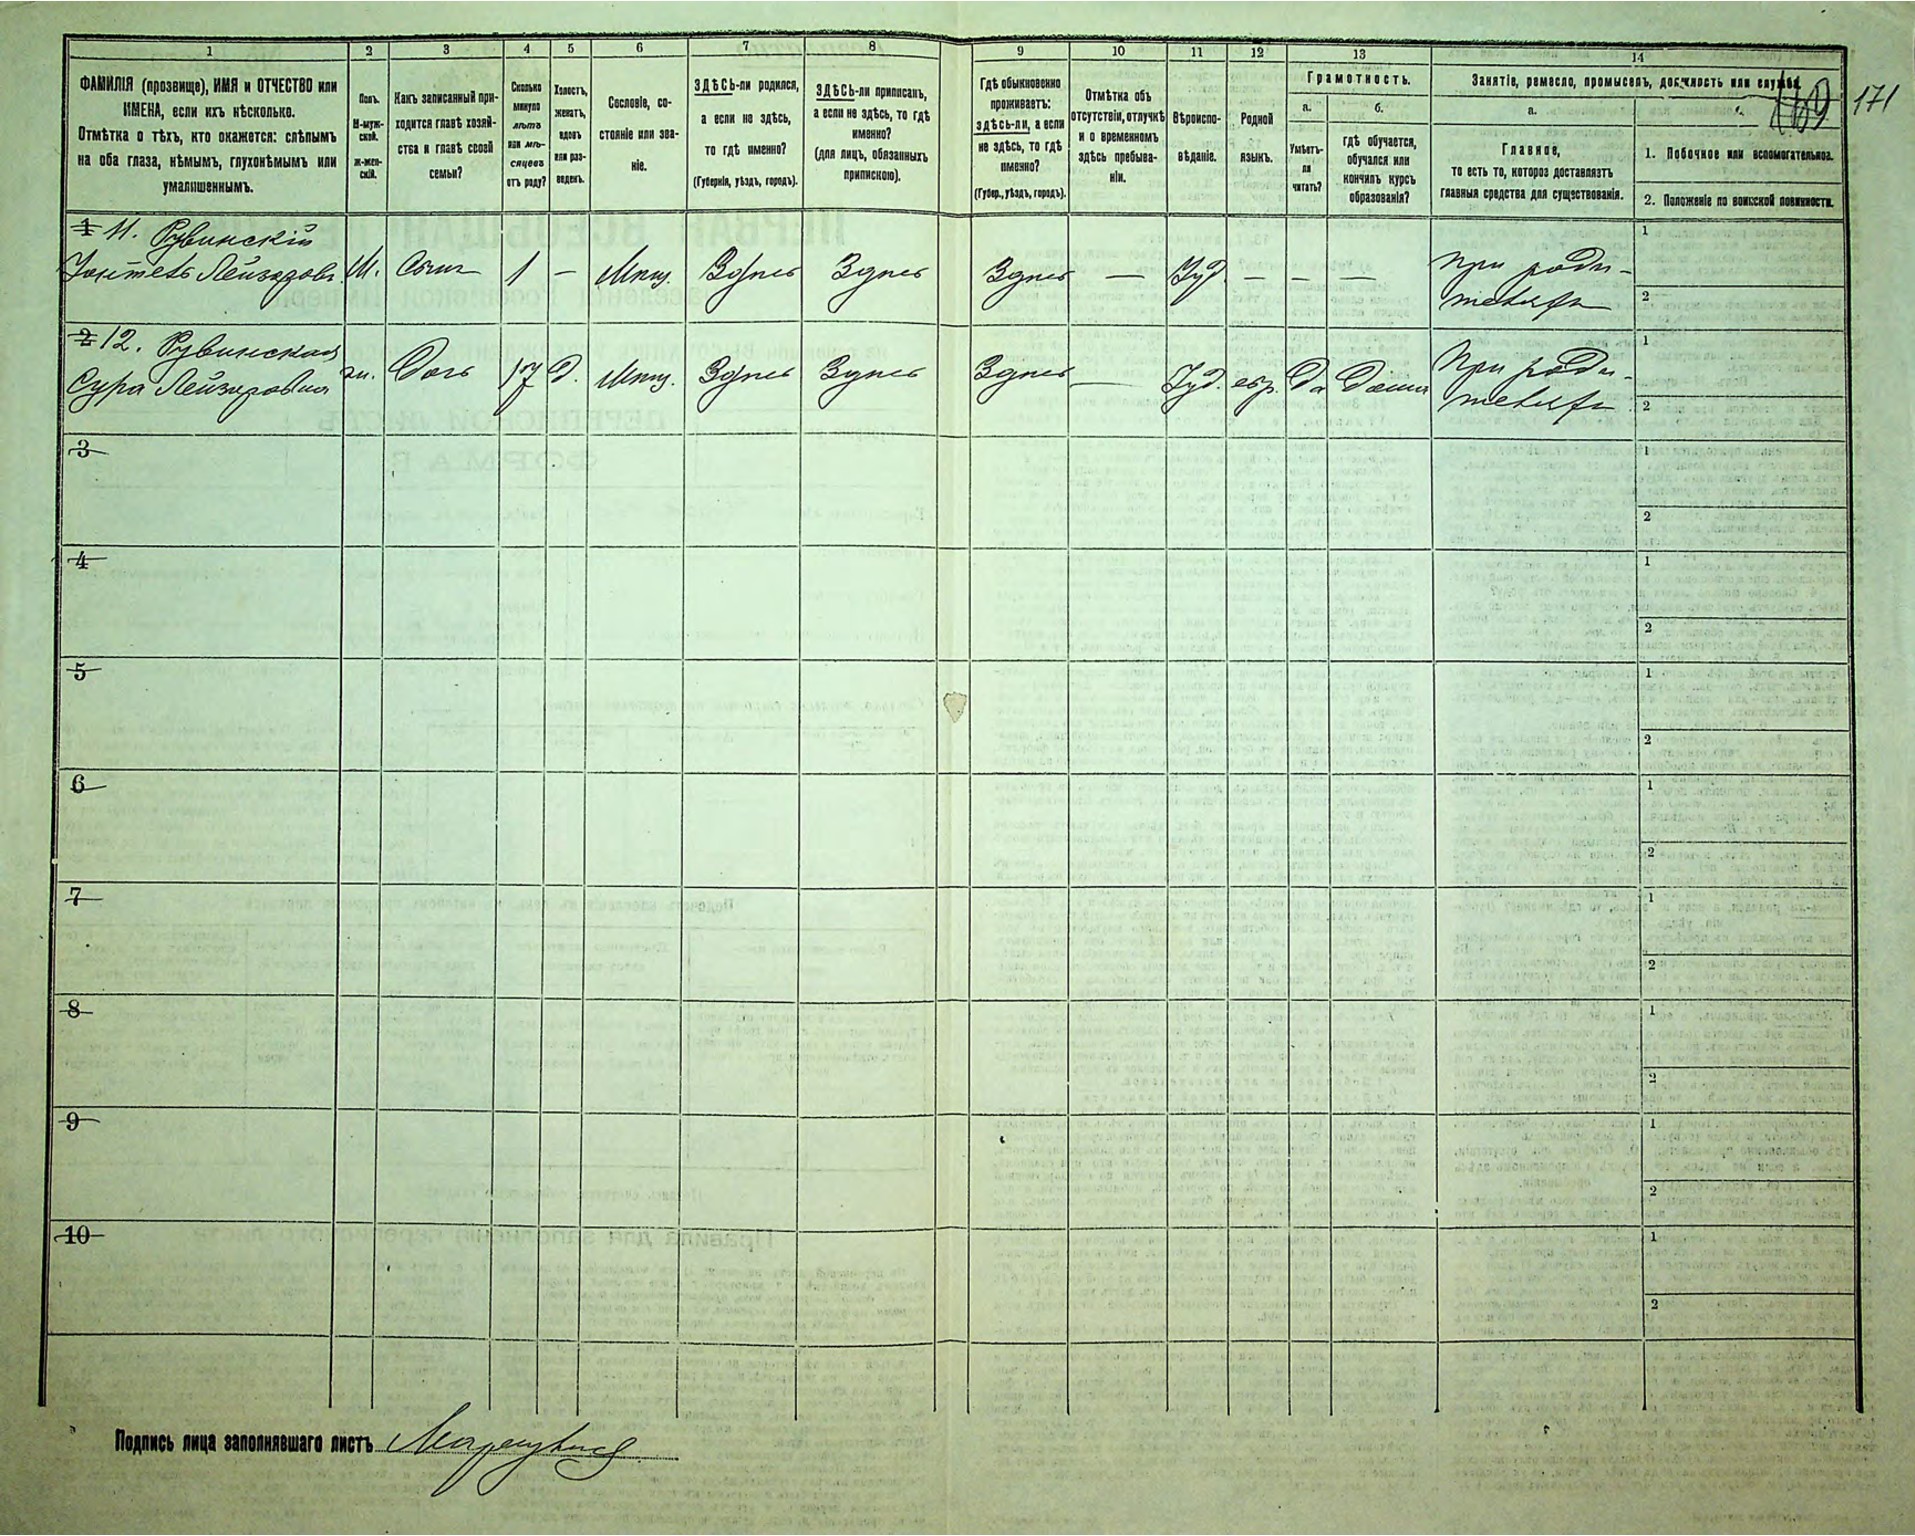 1
2
3
4
5
6
7
8
9
10
11
12
13
14
ФАМИЛІЯ (прозвище), ИМЯ и ОТЧЕСТВО или
ИМЕНА, если ихъ нѣсколько.
Отмѣтка о тѣхъ, кто окажется: слѣпымъ
на оба глаза, нѣмымъ, глухонѣмымъ или
умалишеннымъ.
Полъ.
М-муж-
ской.
ж-жен-
скій.
Какъ записанный при-
ходится главѣ хозяй-
ства и главѣ своей
семьи?
Сколько
минуло
лѣтъ
или мѣ-
сяцевъ
отъ роду?
Холостъ,
женатъ,
вдовъ
или раз-
веденъ.
Сословіе, со-
стояніе или зва-
ніе.
ЗДѢСЬ-ли родился,
а если не здѣсь,
то гдѣ именно?
(Губернія, уѣздъ, городъ).
ЗДѢСЬ-ли приписанъ,
а если не здѣсь, то гдѣ
именно?
(для лицъ, обязанныхъ
припискою).
Гдѣ обыкновенно
проживаетъ:
здѣсь-ли, а если
не здѣсь, то гдѣ
именно?
(Губер., уѣздъ, городъ).
Отмѣтка объ
отсутствіи, отлучкѣ
и о временномъ
здѣсь пребыва-
ніи.
Вѣроиспо-
вѣданіе.
Родной
языкъ.
Грамотность.
а.
б.
Умѣетъ-
ли
читать?
гдѣ обучается,
обучался или
кончилъ курсъ
образованія?
Занятіе, ремесло, промыселъ, должность или служба.
169 171
а.
Главное,
то есть то, которое доставляетъ
главныя средства для существованія.
1. Побочное или вспомогательное.
2. Положеніе по воинской повинности.
1 11. Рувинскій
Лейзеров. М. Сынъ 1 — Мѣщ. Здѣсь Здѣсь Здѣсь — Іуд. — — — При роди-
теляхъ
1
2
2 12. Рувинская
Сура Лейзеровна ж. Дочь 17 д. Мѣщ. Здѣсь Здѣсь Здѣсь — Іуд. евр. Да Дома При роди-
теляхъ
1
2
3
1
2
4
1
2
5
1
2
6
1
2
7
1
2
8
1
2
9
1
2
10
1
2
Подпись лица заполнявшаго листъ